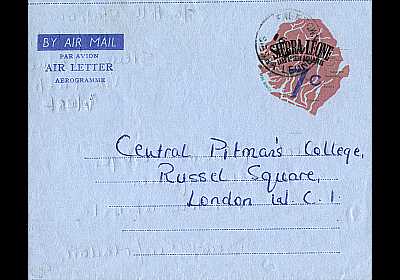 BY AIR MAIL
PAR AVION
AIR LETTER
AEROGRAMME
SIERRA LEONE
7c
Central Pitman's College,
Russel Square,
London W.C.1.